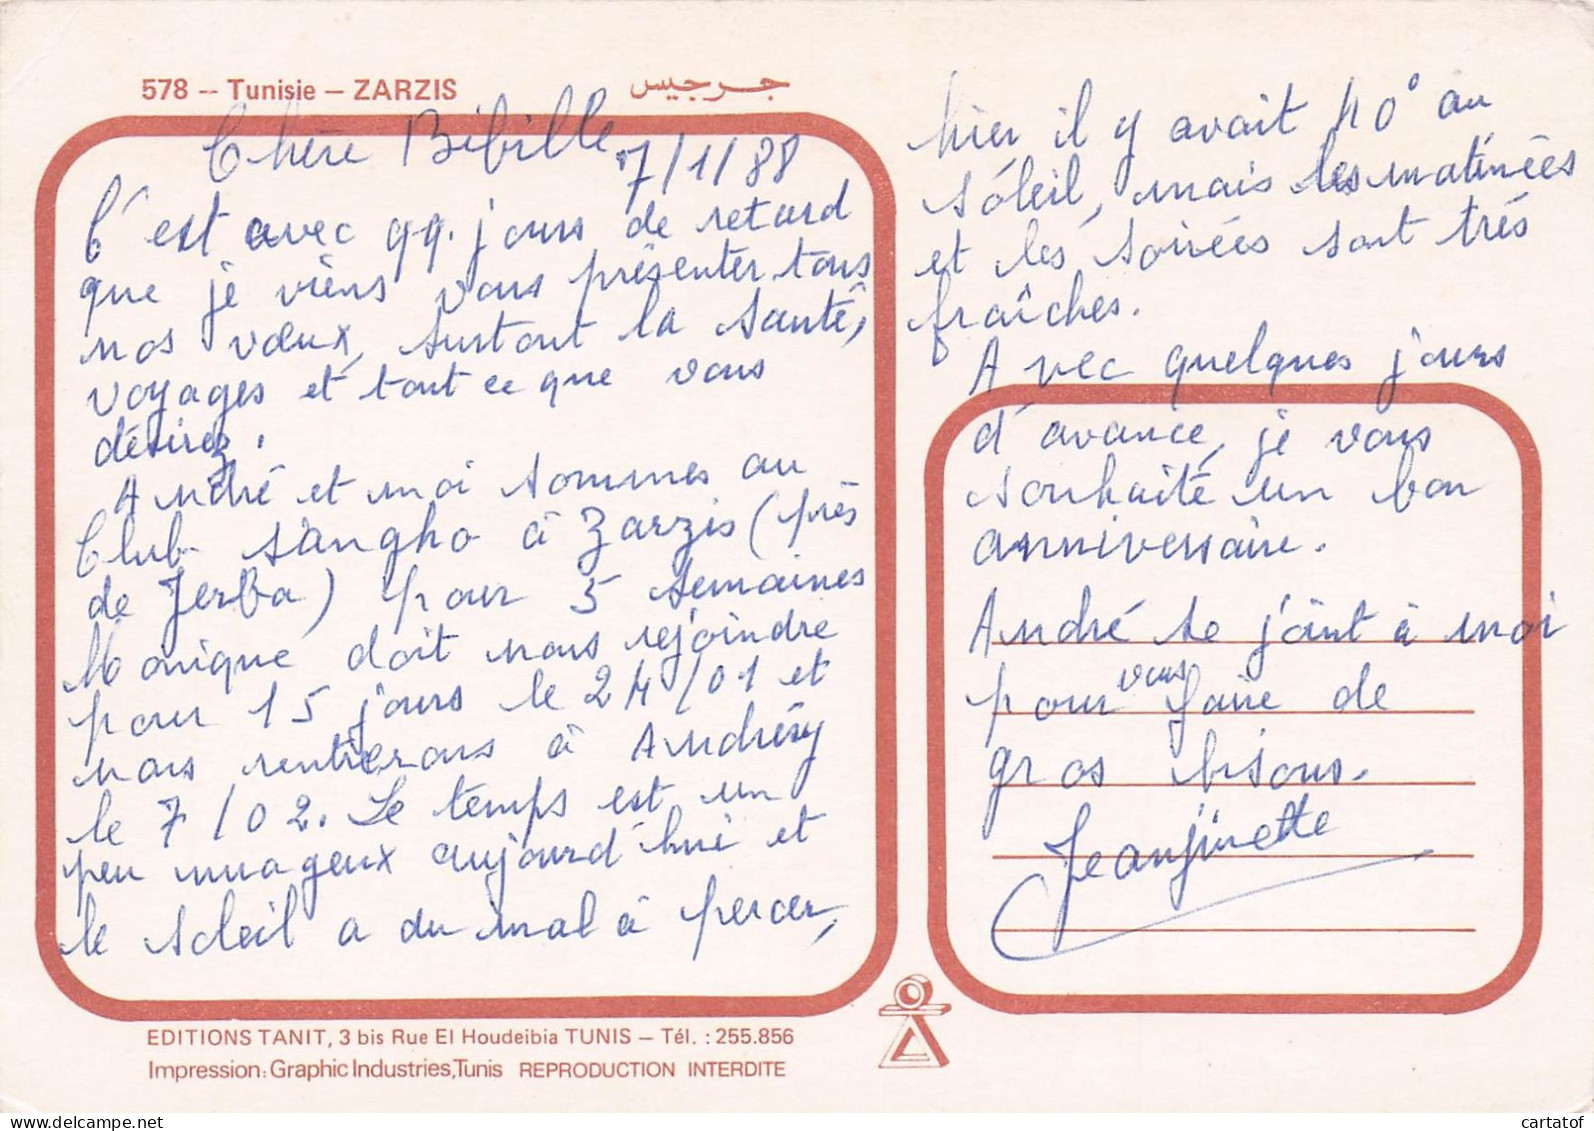 578 -- Tunisie -- ZARZIS
جرجيس
Chère Bibille,
7/1/88
C'est avec qq. jours de retard
que je viens vous présenter tous
nos vœux, surtout la santé,
voyages et tout ce que vous
désirez.
André et moi sommes au
Club Sangho à Zarzis (près
de Jerba) pour 5 semaines
Monique doit nous rejoindre
pour 15 jours le 24/01 et
nous rentrerons à Andrésy
le 7/02. Le temps est un
peu nuageux aujourd'hui et
le soleil a du mal à percer,
hier il y avait 40° au
soleil, mais les matinées
et les soirées sont très
fraîches.
Avec quelques jours
d'avance, je vous
souhaite un bon
anniversaire.
André se joint à moi
pour vous faire de
gros bisous.
EDITIONS TANIT, 3 bis Rue El Houdeibia TUNIS – Tél. : 255.856
Impression: Graphic Industries, Tunis REPRODUCTION INTERDITE
cartatof